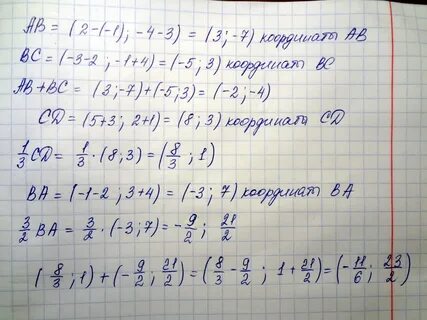 AB = (2-(-1); -4-3) = (3; -7) координаты AB
BC = (-3-2 ; -1+4) = (-5; 3) координаты BC
AB+BC = (3; -7)+(-5; 3) = (-2; -4)
CD = (5+3; 2+1) = (8; 3) координаты CD
1/3 CD = 1/3 · (8; 3) = (8/3 ; 1)
BA = (-1-2 ; 3+4) = (-3; 7) координаты BA
3/2 BA = 3/2 · (-3; 7) = -9/2 ; 21/2
(8/3 ; 1) + (-9/2 ; 21/2) = (8/3 - 9/2 ; 1 + 21/2) = (-11/6 ; 23/2)